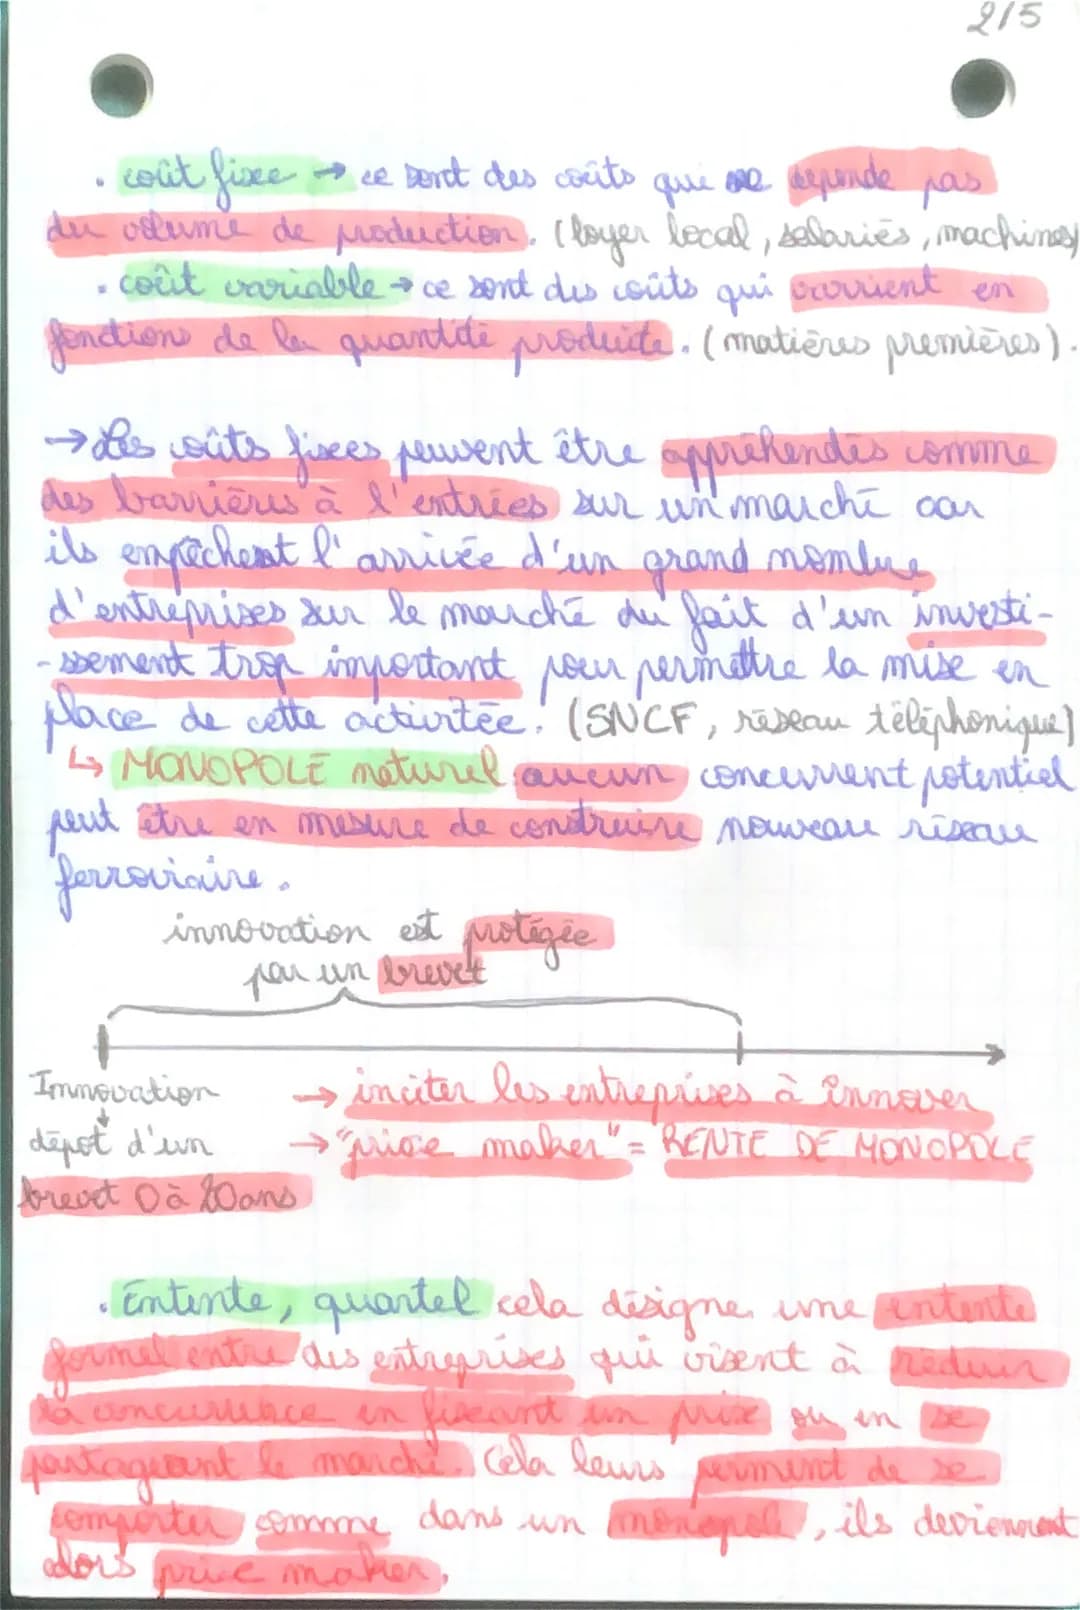 2/5
. coût fixe → ce sont des coûts qui ne dépende pas
du volume de production. (loyer local, salariés, machines)
. coût variable → ce sont des coûts qui varrient en
fonctions de la quantité produite. (matières premières).
→ Les coûts fixes peuvent être appréhendés comme
des barrières à l'entrées sur un marché car
ils empêchent l'arrivée d'un grand nombre
d'entreprises sur le marché du fait d'un investi-
-ssement trop important pour permettre la mise en
place de cette activitée. (SNCF, réseau téléphonique)
↳ MONOPOLE naturel aucun concurrent potentiel
peut être en mesure de construire nouveau réseau
ferroviaire.
innovation est protégée
par un brevet
Innovation → inciter les entreprises à innover
↓
dépot d'un → "price maker" = RENTE DE MONOPOLE
brevet 0 à 20ans
. Entente, quartel cela désigne une entente
formel entre des entreprises qui visent à réduir
la concurrence en fixant un prix ou en se
partageant le marché. Cela leurs perment de se
comporter comme dans un monopole, ils deviennent
alors price maker.